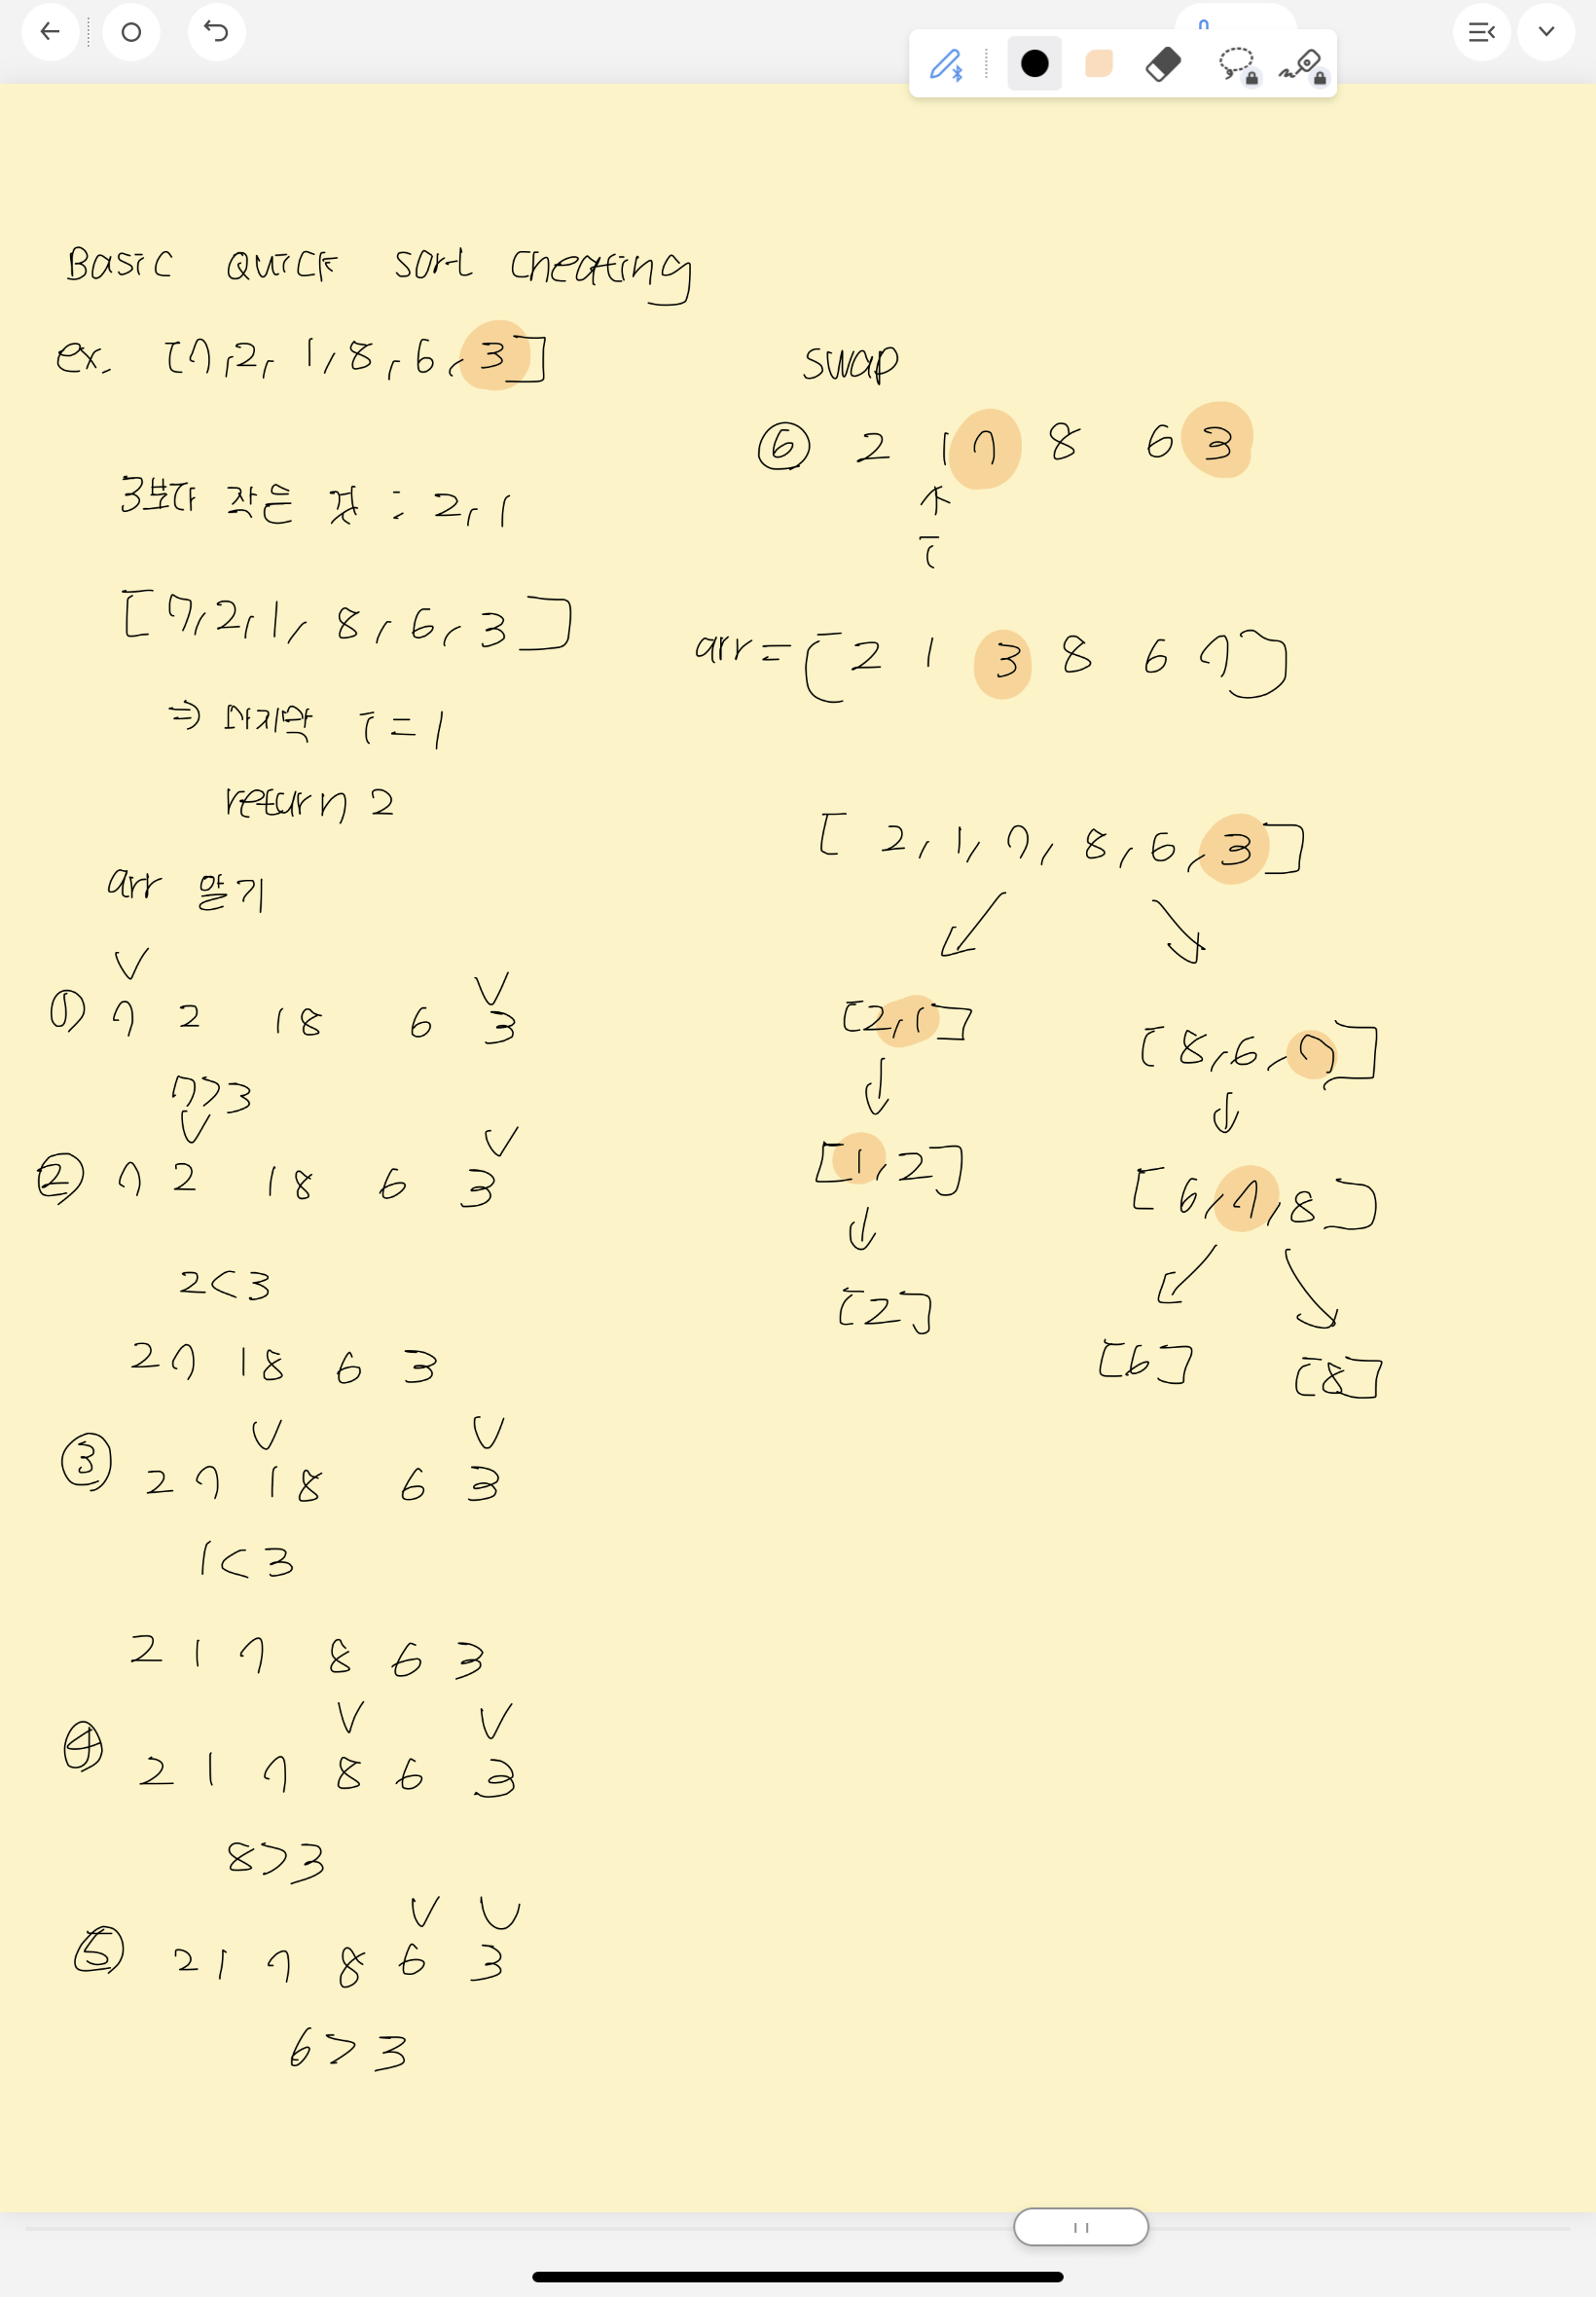 Basic Quick sort cheating
ex. [7, 2, 1, 8, 6, 3]
3보다 작은 것 : 2, 1
[7, 2, 1, 8, 6, 3]
⇒ 마지막 i = 1
return 2
arr 읽기
V V
① 7 2 1 8 6 3
7 > 3
V V
② 7 2 1 8 6 3
2 < 3
2 7 1 8 6 3
V V
③ 2 7 1 8 6 3
1 < 3
2 1 7 8 6 3
V V
④ 2 1 7 8 6 3
8 > 3
V V
⑤ 2 1 7 8 6 3
6 > 3
swap
⑥ 2 1 7 8 6 3
↑
i
arr = [2 1 3 8 6 7]
[2, 1, 7, 8, 6, 3]
↙ ↘
[2, 1] [8, 6, 7]
↓ ↓
[1, 2] [6, 7, 8]
↓ ↙ ↘
[2] [6] [8]